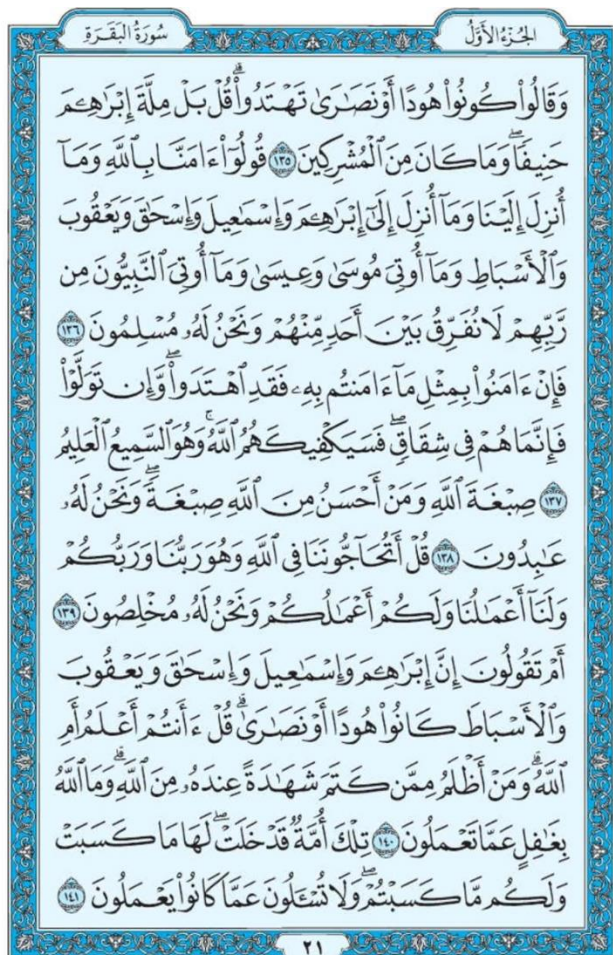 الجُزْءُ الأَوَّلُ
سُورَةُ البَقَرَةِ
وَقَالُواْ كُونُواْ هُودًا أَوْ نَصَٰرَىٰ تَهْتَدُواْۗ قُلْ بَلْ مِلَّةَ إِبْرَٰهِـۧمَ
حَنِيفٗاۖ وَمَا كَانَ مِنَ ٱلْمُشْرِكِينَ ١٣٥ قُولُوٓاْ ءَامَنَّا بِٱللَّهِ وَمَآ
أُنزِلَ إِلَيْنَا وَمَآ أُنزِلَ إِلَىٰٓ إِبْرَٰهِـۧمَ وَإِسْمَٰعِيلَ وَإِسْحَٰقَ وَيَعْقُوبَ
وَٱلْأَسْبَاطِ وَمَآ أُوتِيَ مُوسَىٰ وَعِيسَىٰ وَمَآ أُوتِيَ ٱلنَّبِيُّونَ مِن
رَّبِّهِمْ لَا نُفَرِّقُ بَيْنَ أَحَدٖ مِّنْهُمْ وَنَحْنُ لَهُۥ مُسْلِمُونَ ١٣٦
فَإِنْ ءَامَنُواْ بِمِثْلِ مَآ ءَامَنتُم بِهِۦ فَقَدِ ٱهْتَدَواْۖ وَّإِن تَوَلَّوْاْ
فَإِنَّمَا هُمْ فِي شِقَاقٖۖ فَسَيَكْفِيكَهُمُ ٱللَّهُۚ وَهُوَ ٱلسَّمِيعُ ٱلْعَلِيمُ
١٣٧ صِبْغَةَ ٱللَّهِ وَمَنْ أَحْسَنُ مِنَ ٱللَّهِ صِبْغَةٗۖ وَنَحْنُ لَهُۥ
عَٰبِدُونَ ١٣٨ قُلْ أَتُحَآجُّونَنَا فِي ٱللَّهِ وَهُوَ رَبُّنَا وَرَبُّكُمْ
وَلَنَآ أَعْمَٰلُنَا وَلَكُمْ أَعْمَٰلُكُمْ وَنَحْنُ لَهُۥ مُخْلِصُونَ ١٣٩
أَمْ تَقُولُونَ إِنَّ إِبْرَٰهِـۧمَ وَإِسْمَٰعِيلَ وَإِسْحَٰقَ وَيَعْقُوبَ
وَٱلْأَسْبَاطَ كَانُواْ هُودًا أَوْ نَصَٰرَىٰۗ قُلْ ءَأَنتُمْ أَعْلَمُ أَمِ
ٱللَّهُۗ وَمَنْ أَظْلَمُ مِمَّن كَتَمَ شَهَٰدَةً عِندَهُۥ مِنَ ٱللَّهِۗ وَمَا ٱللَّهُ
بِغَٰفِلٍ عَمَّا تَعْمَلُونَ ١٤٠ تِلْكَ أُمَّةٞ قَدْ خَلَتْۖ لَهَا مَا كَسَبَتْ
وَلَكُم مَّا كَسَبْتُمْۖ وَلَا تُسْـَٔلُونَ عَمَّا كَانُواْ يَعْمَلُونَ ١٤١
٢١